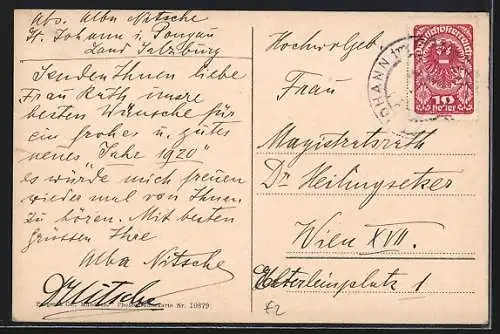 Abs. Alba Nitsche
St. Johann i. Pongau
Land Salzburg
Senden Ihnen liebe
Frau Rath unsre
besten Wünsche für
ein frohes u. gutes
neues "Jahr 1920"
es würde mich freuen
wieder mal von Ihnen
zu hören. Mit besten
Grüssen Ihre
Alba Nitsche
Nitsche
karte Nr. 10879
Hochwolgeb.
Frau
Magistratsrath
Dr Heilingsetzer
Wien XVII.
Elterleinplatz 1
Deutschösterreich
10
Heller
JOHANN